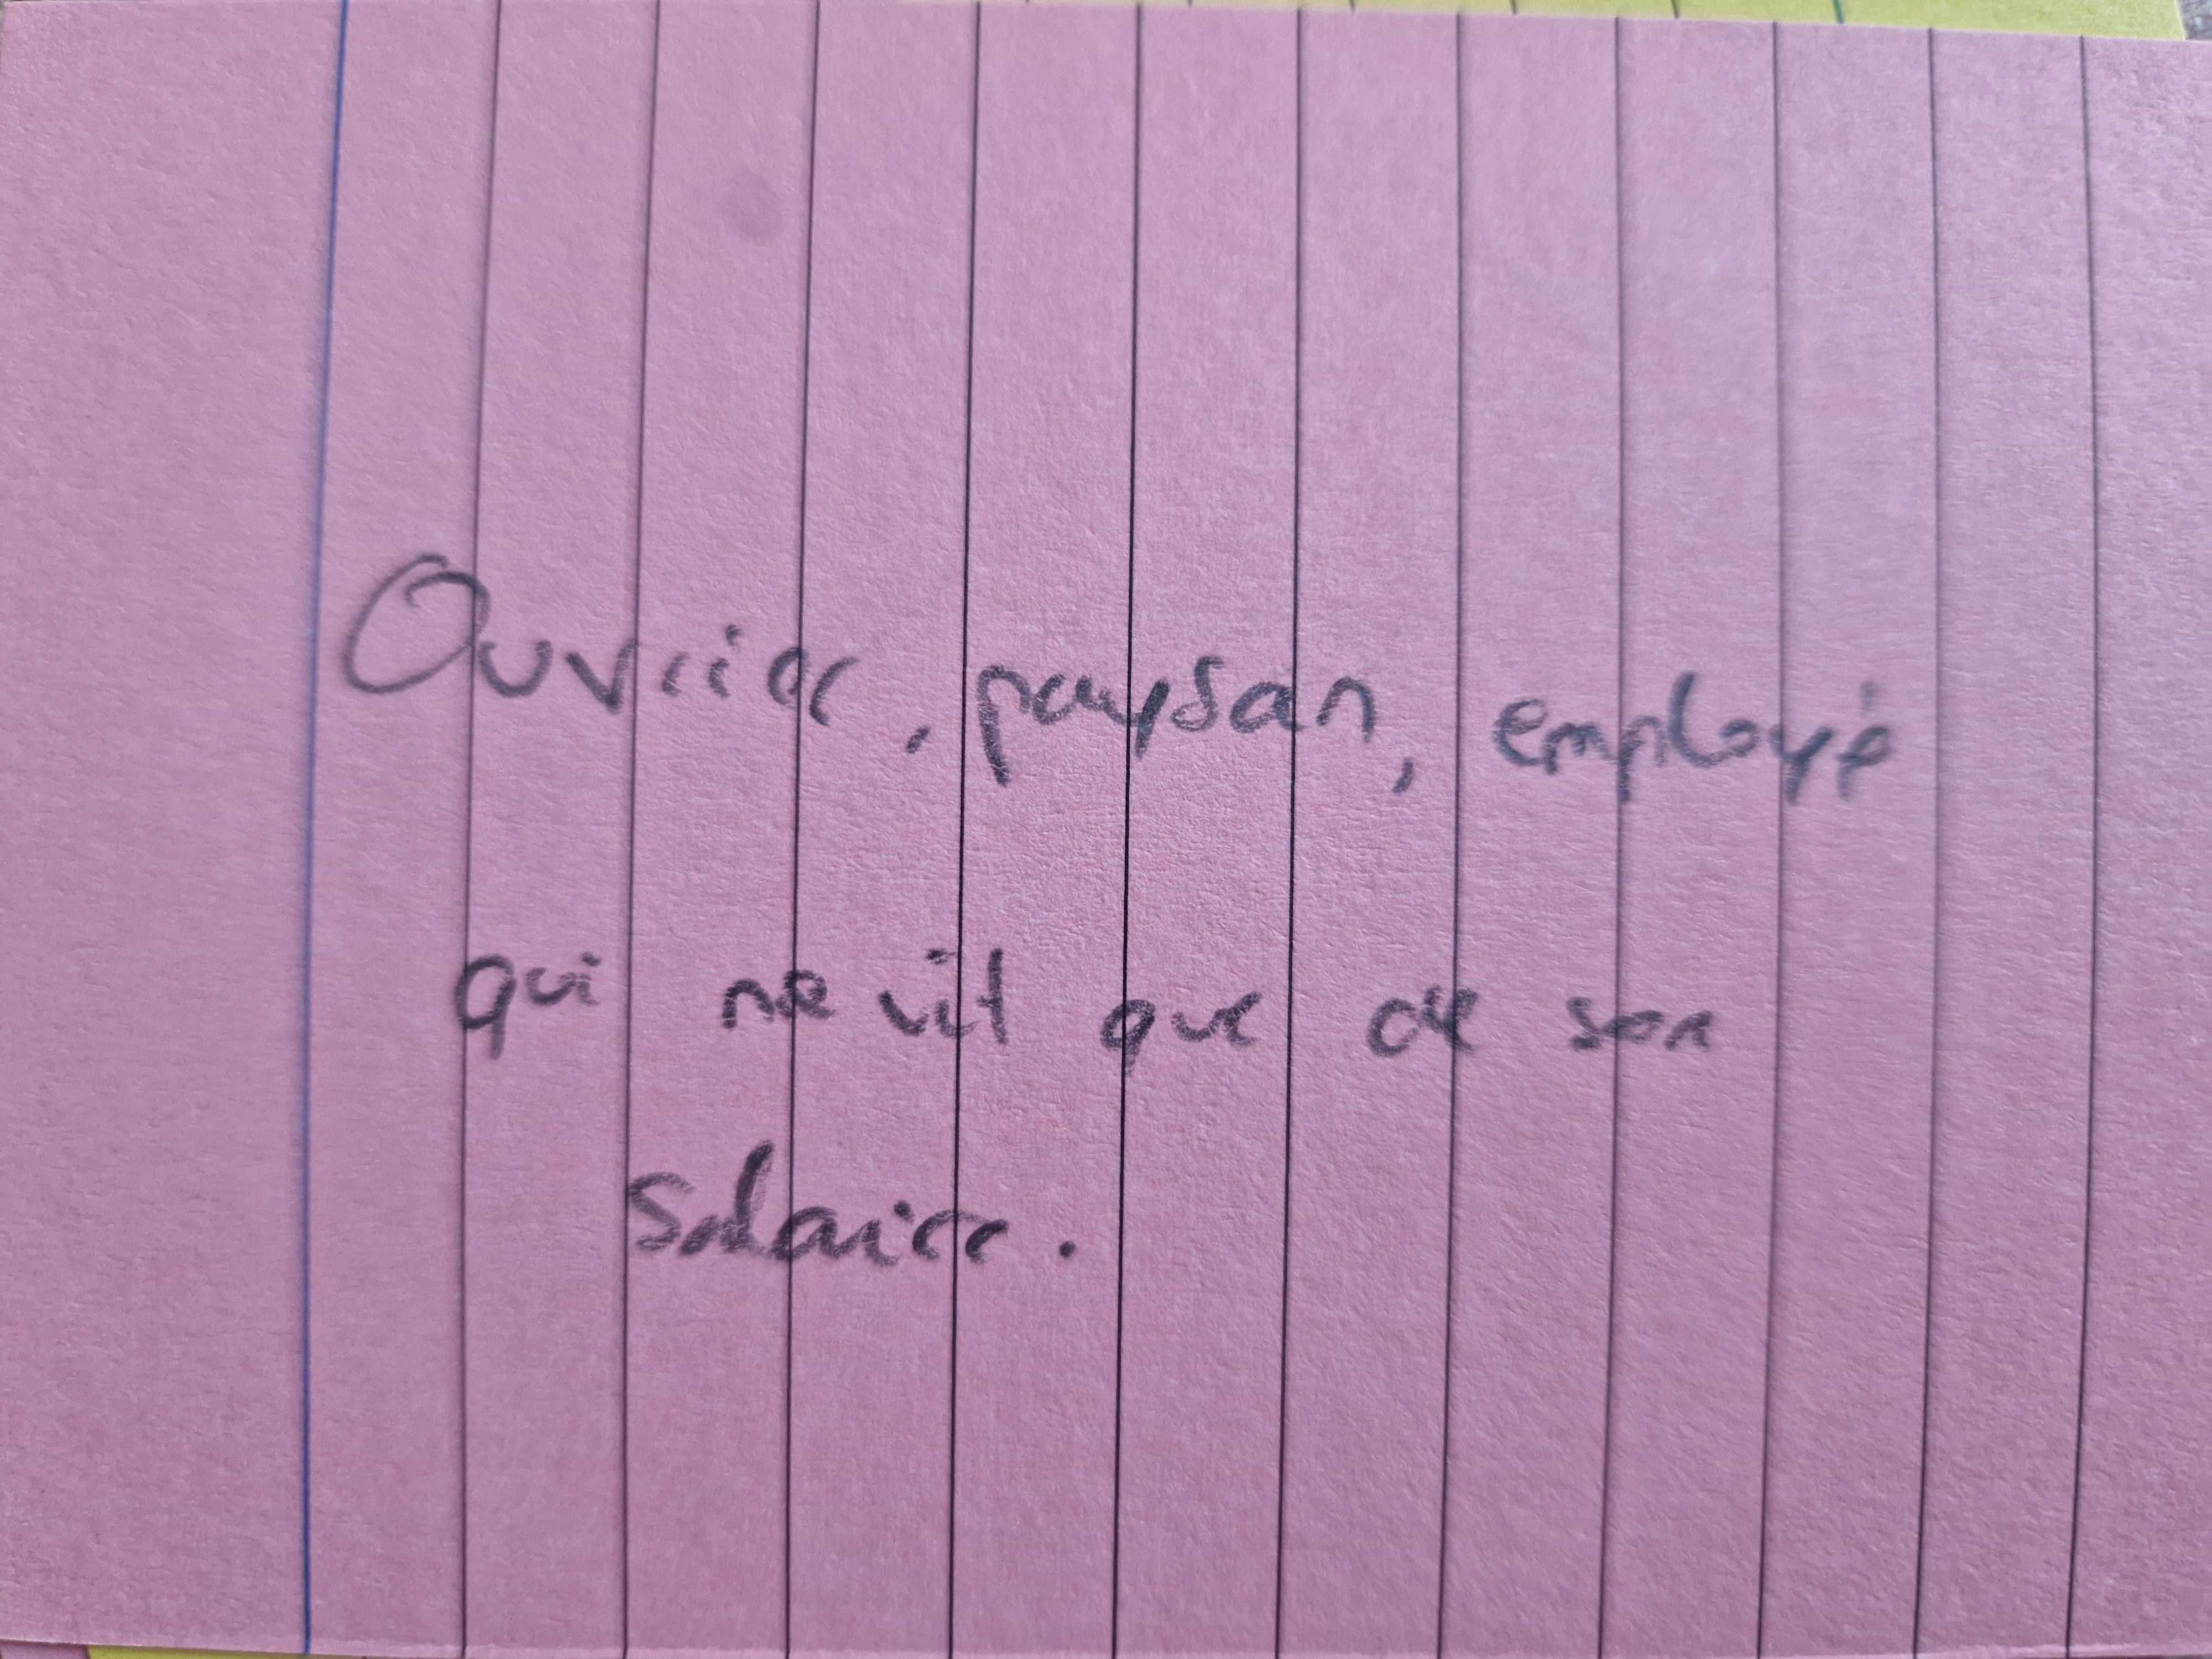 Ouvrier, paysan, employé
qui ne vit que de son
salaire.